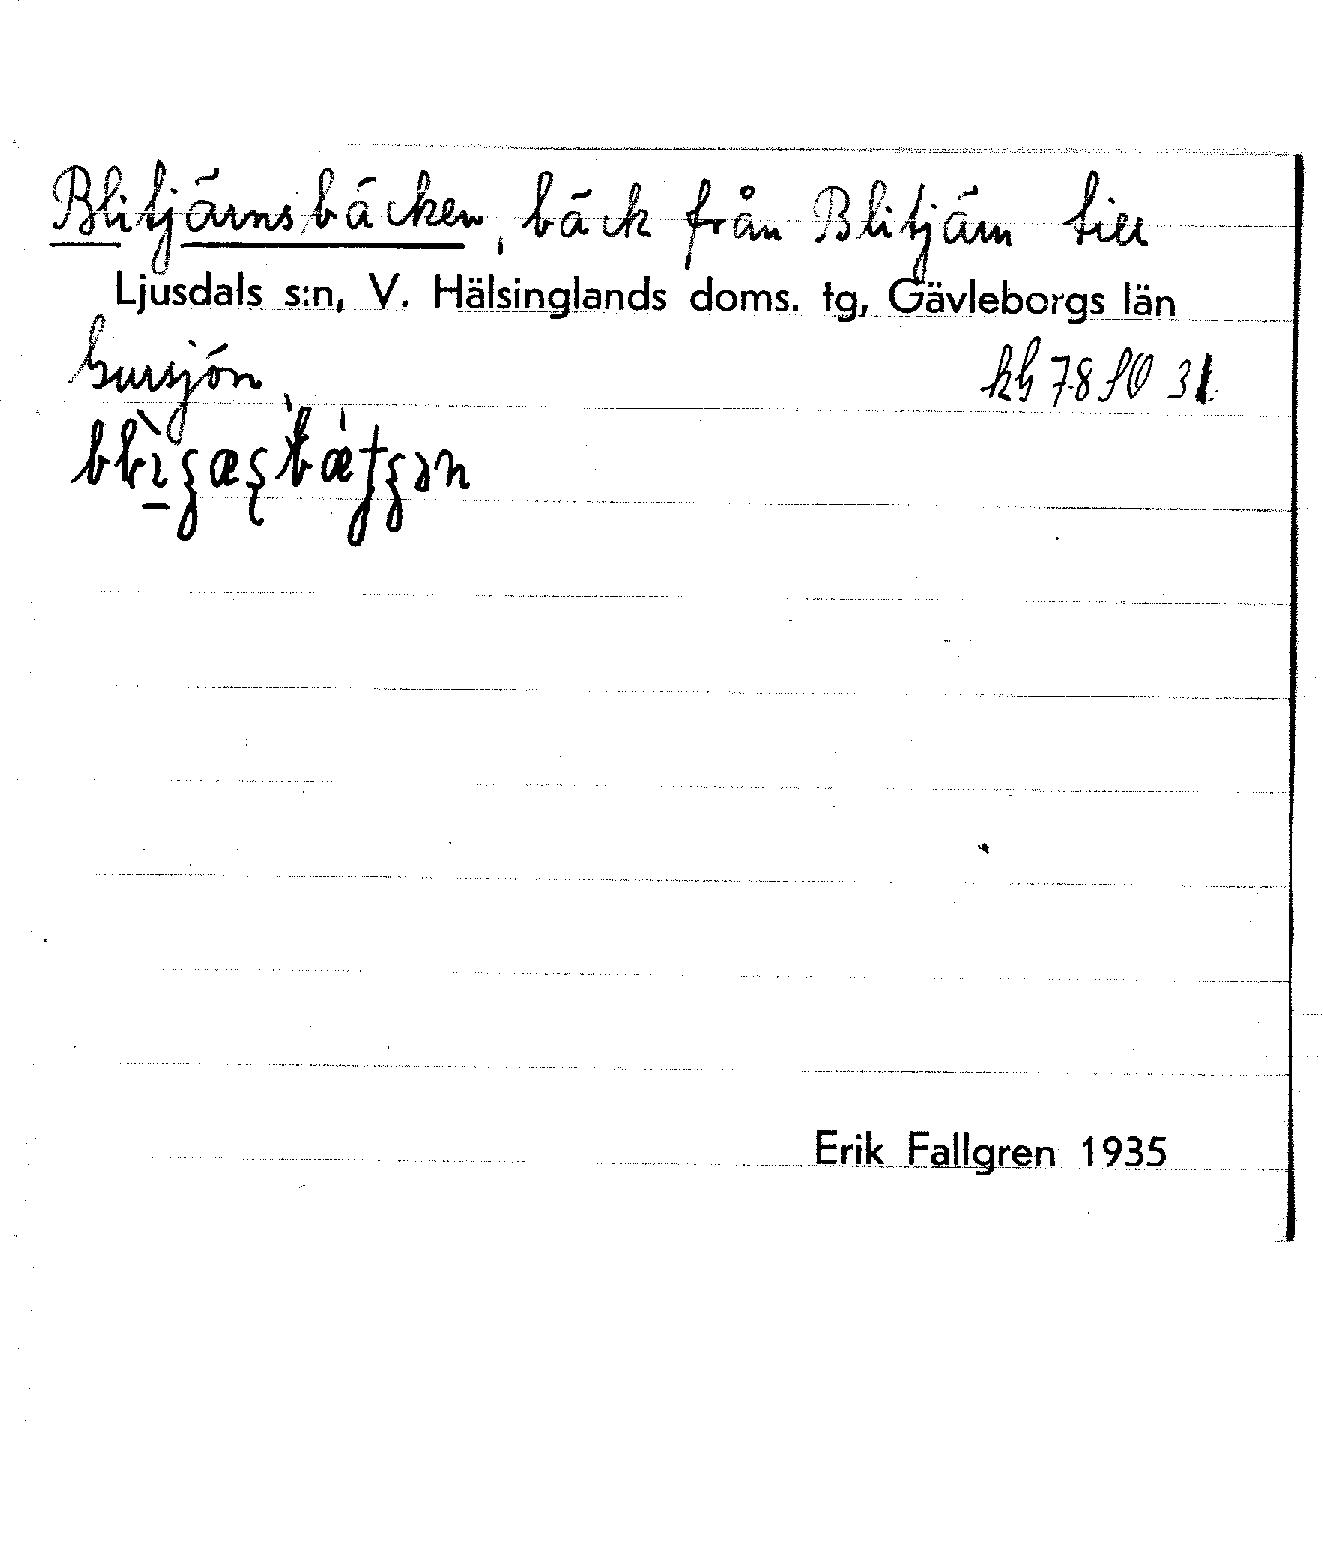 Blitjärnsbäcken, bäck från Blitjärn till
Ljusdals s:n, V. Hälsinglands doms. tg, Gävleborgs län
78 SO 31
Erik Fallgren 1935